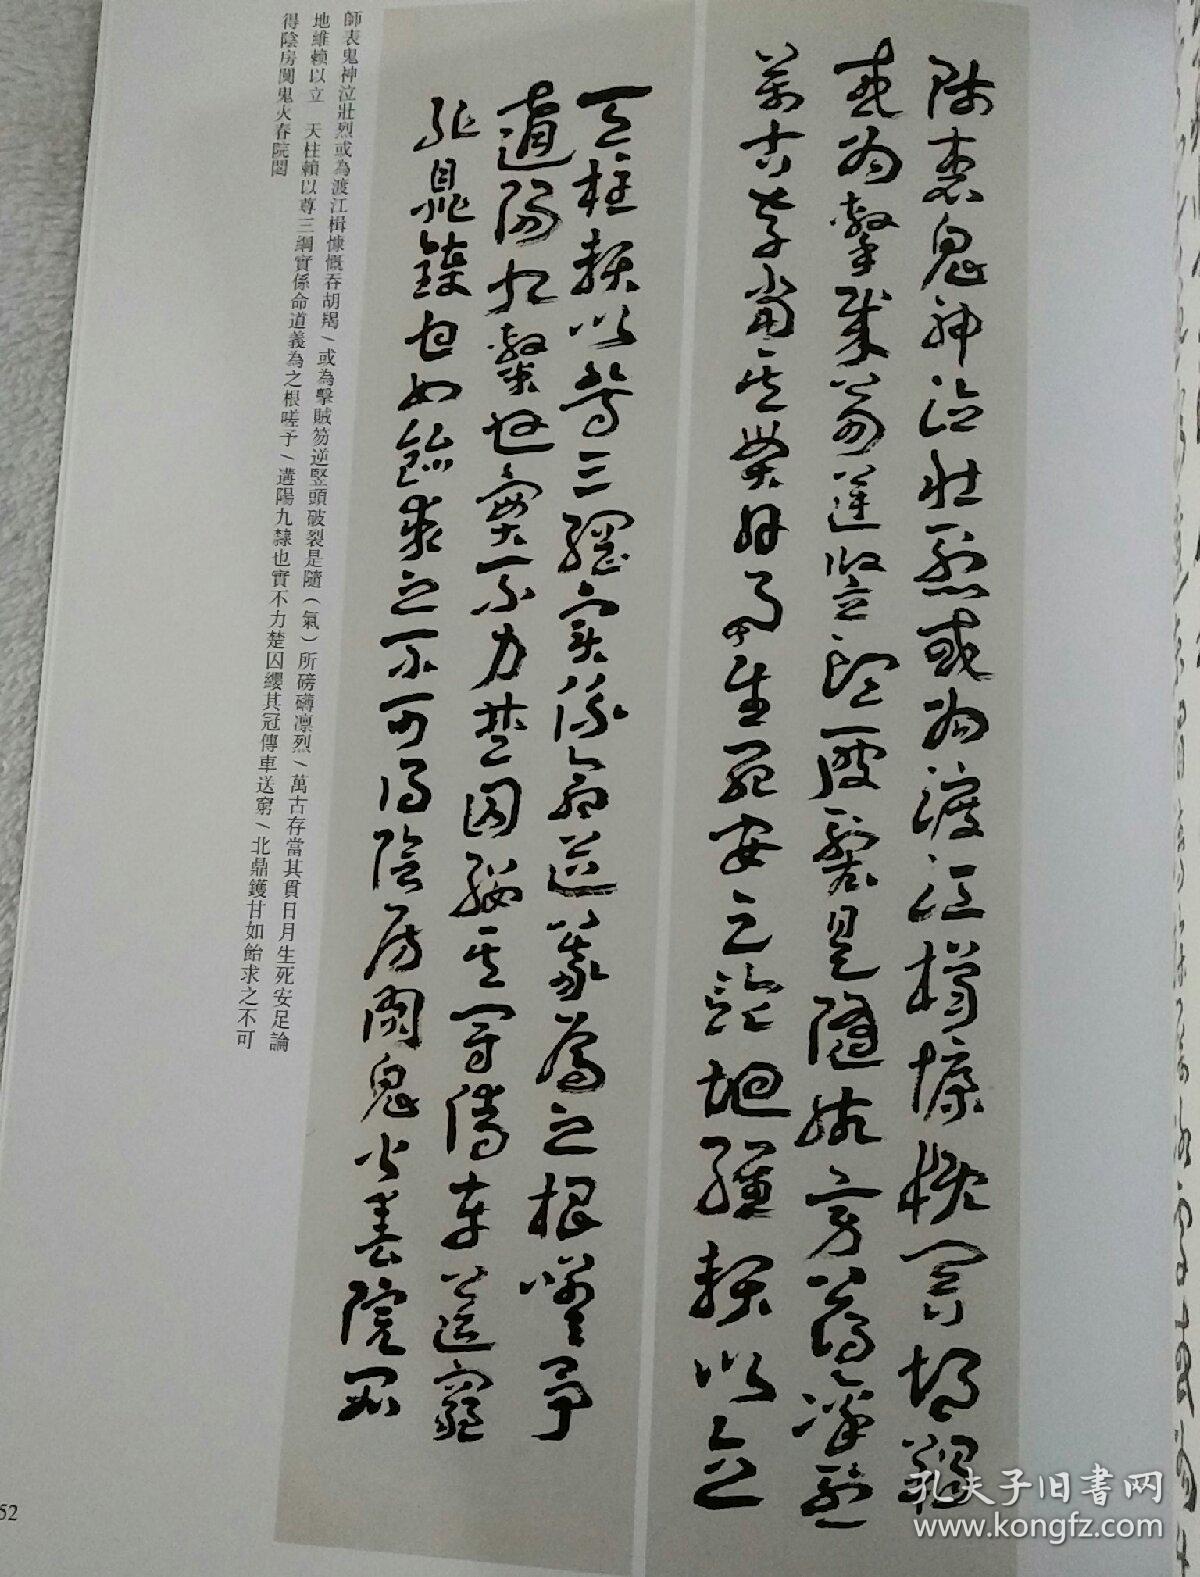 師表鬼神泣壯烈或為渡江楫慷慨吞胡羯
或為擊賊笏逆豎頭破裂是隨所磅礴凜烈
萬古存當其貫日月生死安足論地維賴以立
天柱賴以尊三綱實係命道義為之根嗟予
遘陽九隸也實不力楚囚纓其冠傳車送窮
北鼎鑊甘如飴求之不可得陰房闃鬼火春院閟
師表鬼神泣壯烈或為渡江楫慷慨吞胡羯/或為擊賊笏逆豎頭破裂是隨(氣)所磅礴凜烈/萬古存當其貫日月生死安足論
地維賴以立 天柱賴以尊三綱實係命道義為之根嗟予/遘陽九隸也實不力楚囚纓其冠傳車送窮/北鼎鑊甘如飴求之不可
得陰房闃鬼火春院閟
52
孔夫子旧书网
www.kongfz.com